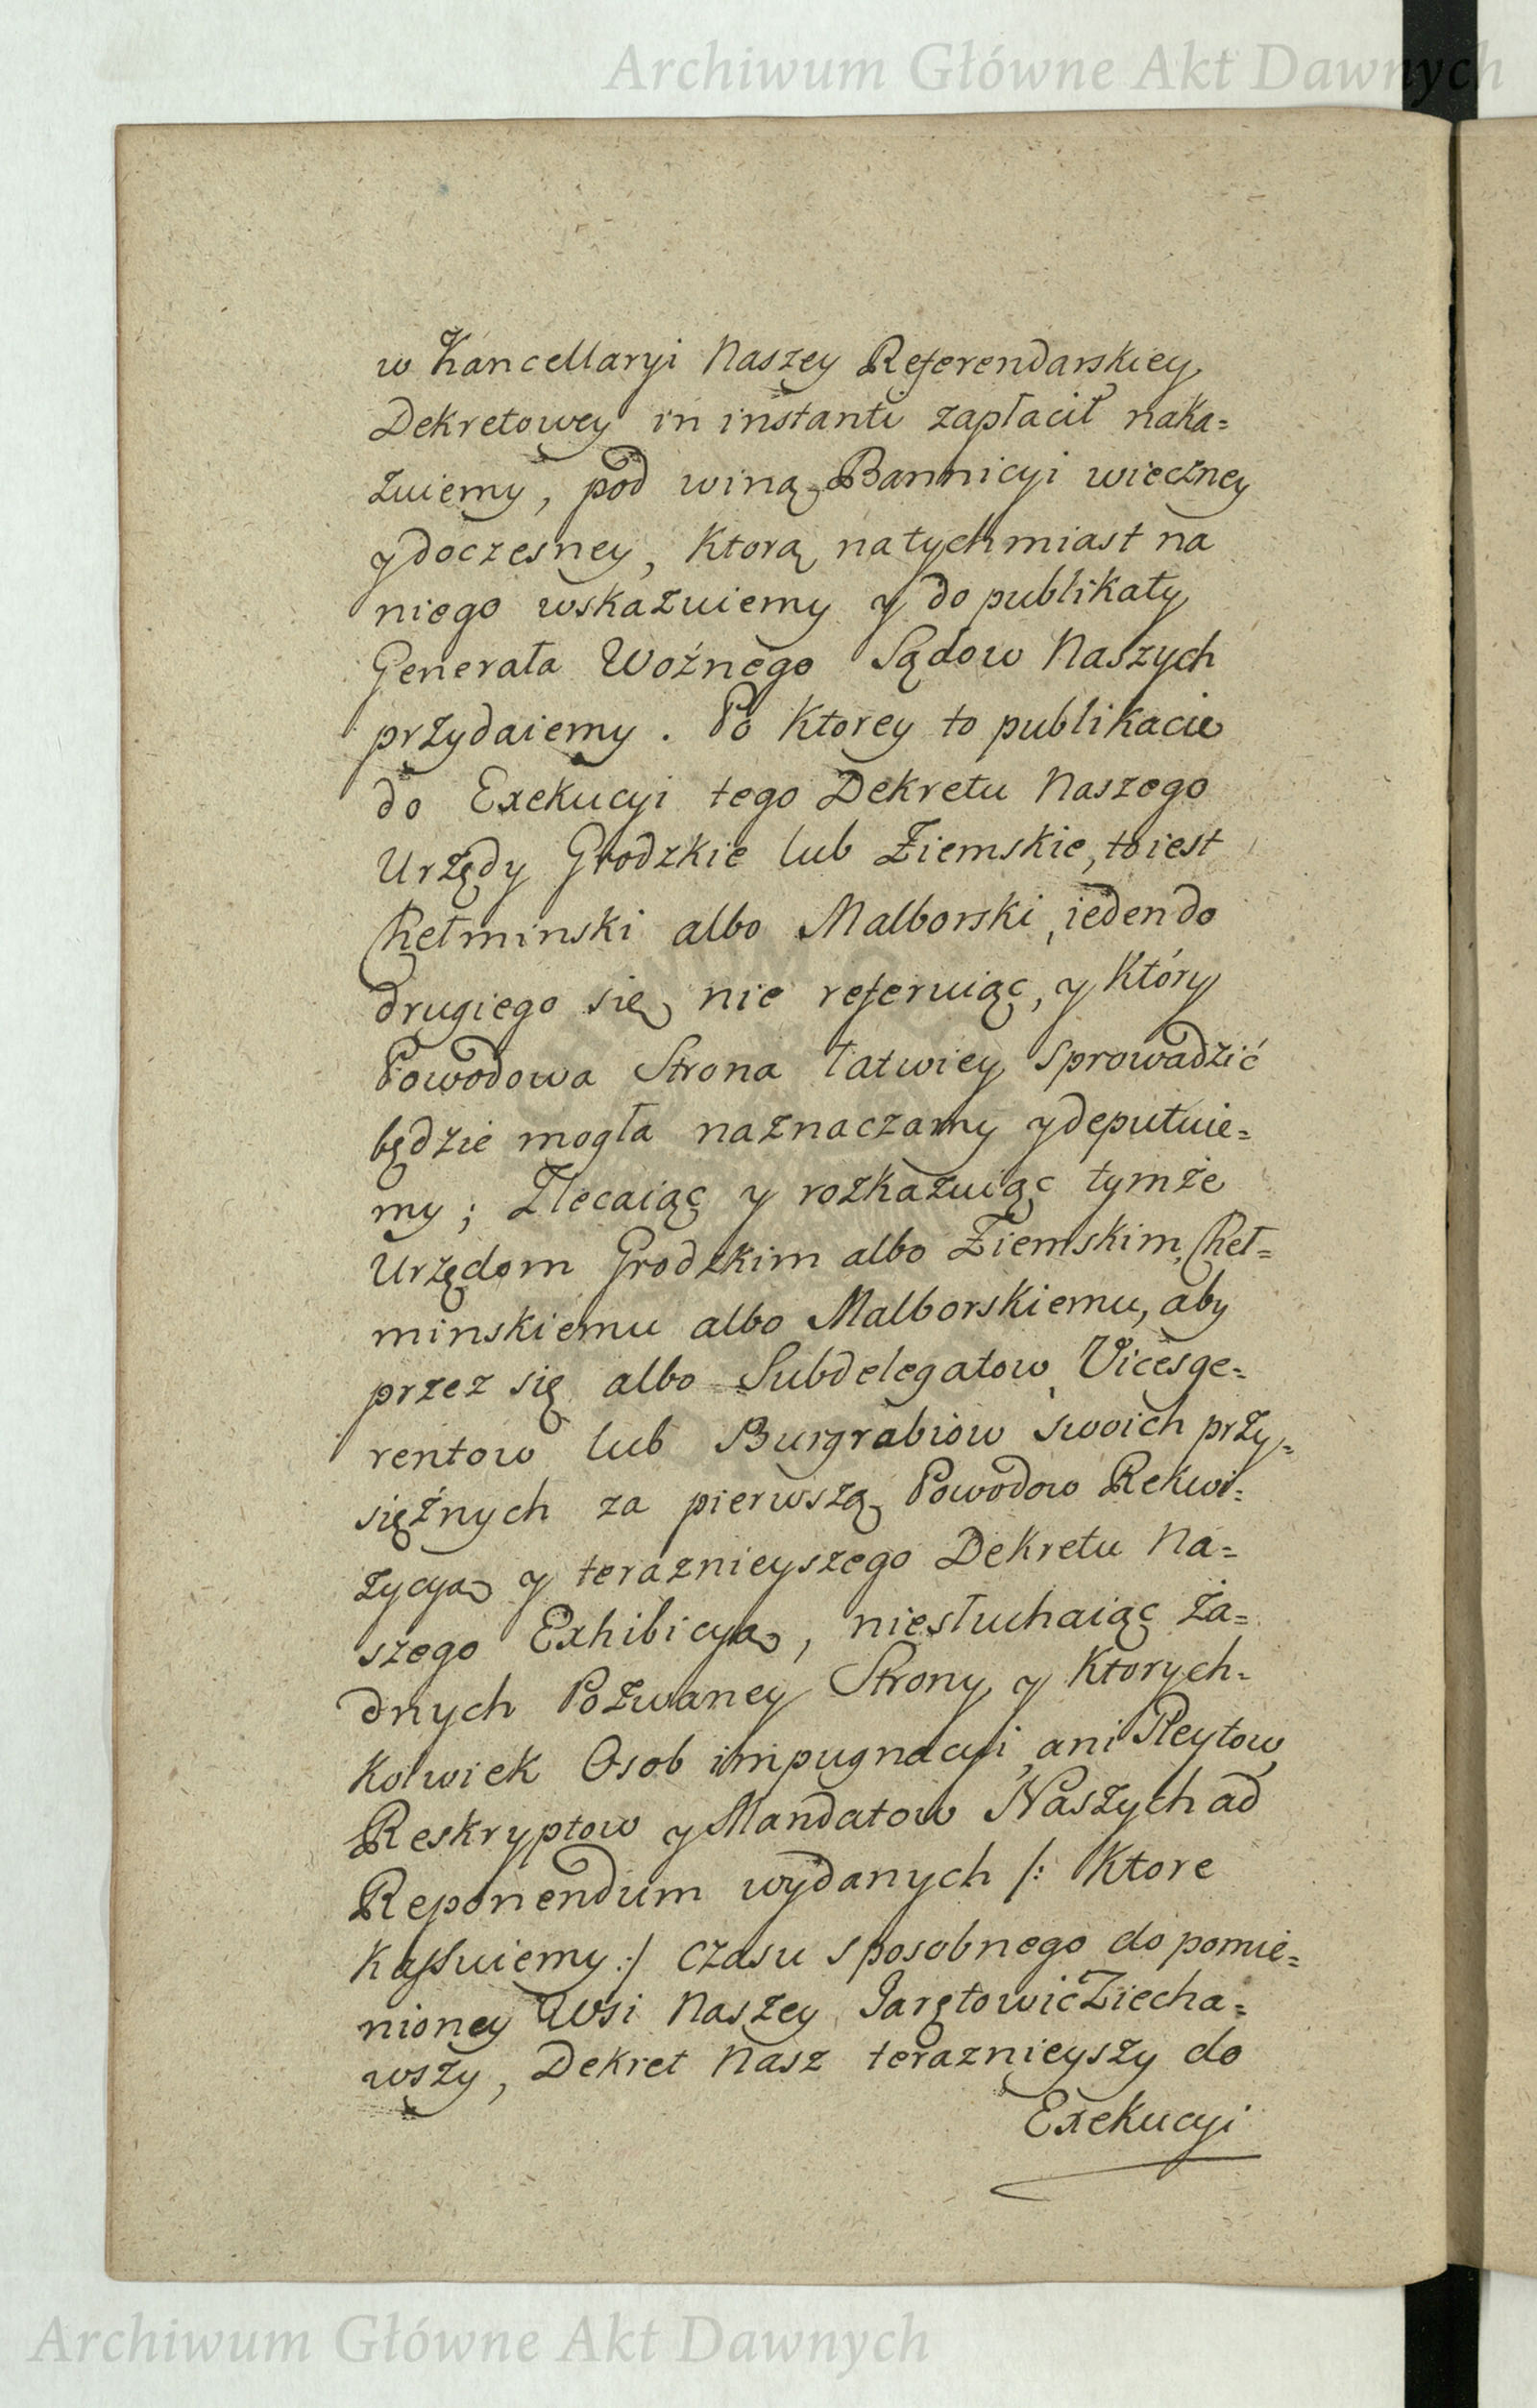 Archiwum Główne Akt Dawnych
w Kancellaryi Naszey Referendarskiey
Dekretowey in instanti zapłacił naka=
zuiemy, pod winą Bannicyi wieczney
y doczesney, Ktorą natychmiast na
niego wskazuiemy y do publikaty
Generała Woźnego Sądow Naszych
przydaiemy. Po Ktorey to publikacie
do Exekucyi tego Dekretu Naszego
Urzędy Grodzkie lub Ziemskie, to iest
Chełminski albo Malborski, ieden do
drugiego się nie referuiąc, y Który
Powodowa Strona łatwiey sprowadzić
będzie mogła naznaczamy y deputuie=
my; Zlecaiąc y rozkazuiąc tymże
Urzędom Grodzkim albo Ziemskim, Cheł=
minskiemu albo Malborskiemu, aby
przez się albo Subdelegatow, Vicesge=
rentow lub Burgrabiow swoich przy=
siężnych za pierwszą Powodow Rekwi=
zycyą y teraznieyszego Dekretu Na=
szego Exhibicyą, niesłuchaiąc ża=
dnych Pozwaney Strony y Ktorych=
Kolwiek Osob impugnacyi, ani Pleytow,
Reskryptow y Mandatow Naszych ad
Reponendum wydanych /: Ktore
Kassuiemy :/ czasu sposobnego do pomie=
nioney Wsi Naszey Jarętowic Ziecha=
wszy, Dekret Nasz teraznieyszy do
Exekucyi
Archiwum Główne Akt Dawnych